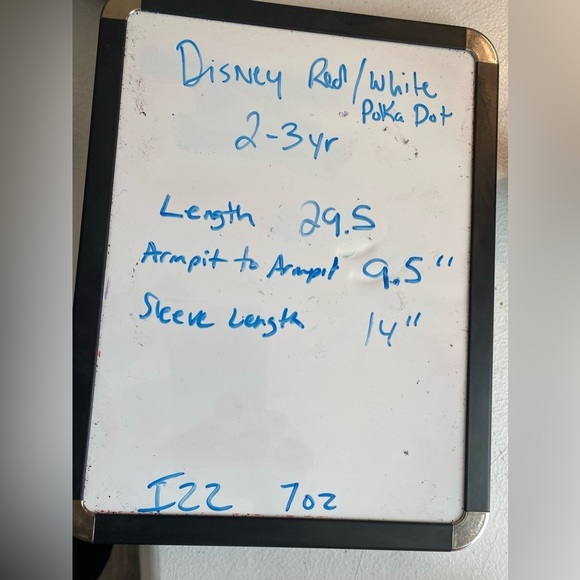 Disney Red/White
Polka Dot
2-3yr
Length 29.5
Armpit to Armpit 9.5"
Sleeve Length 14"
I22 7oz